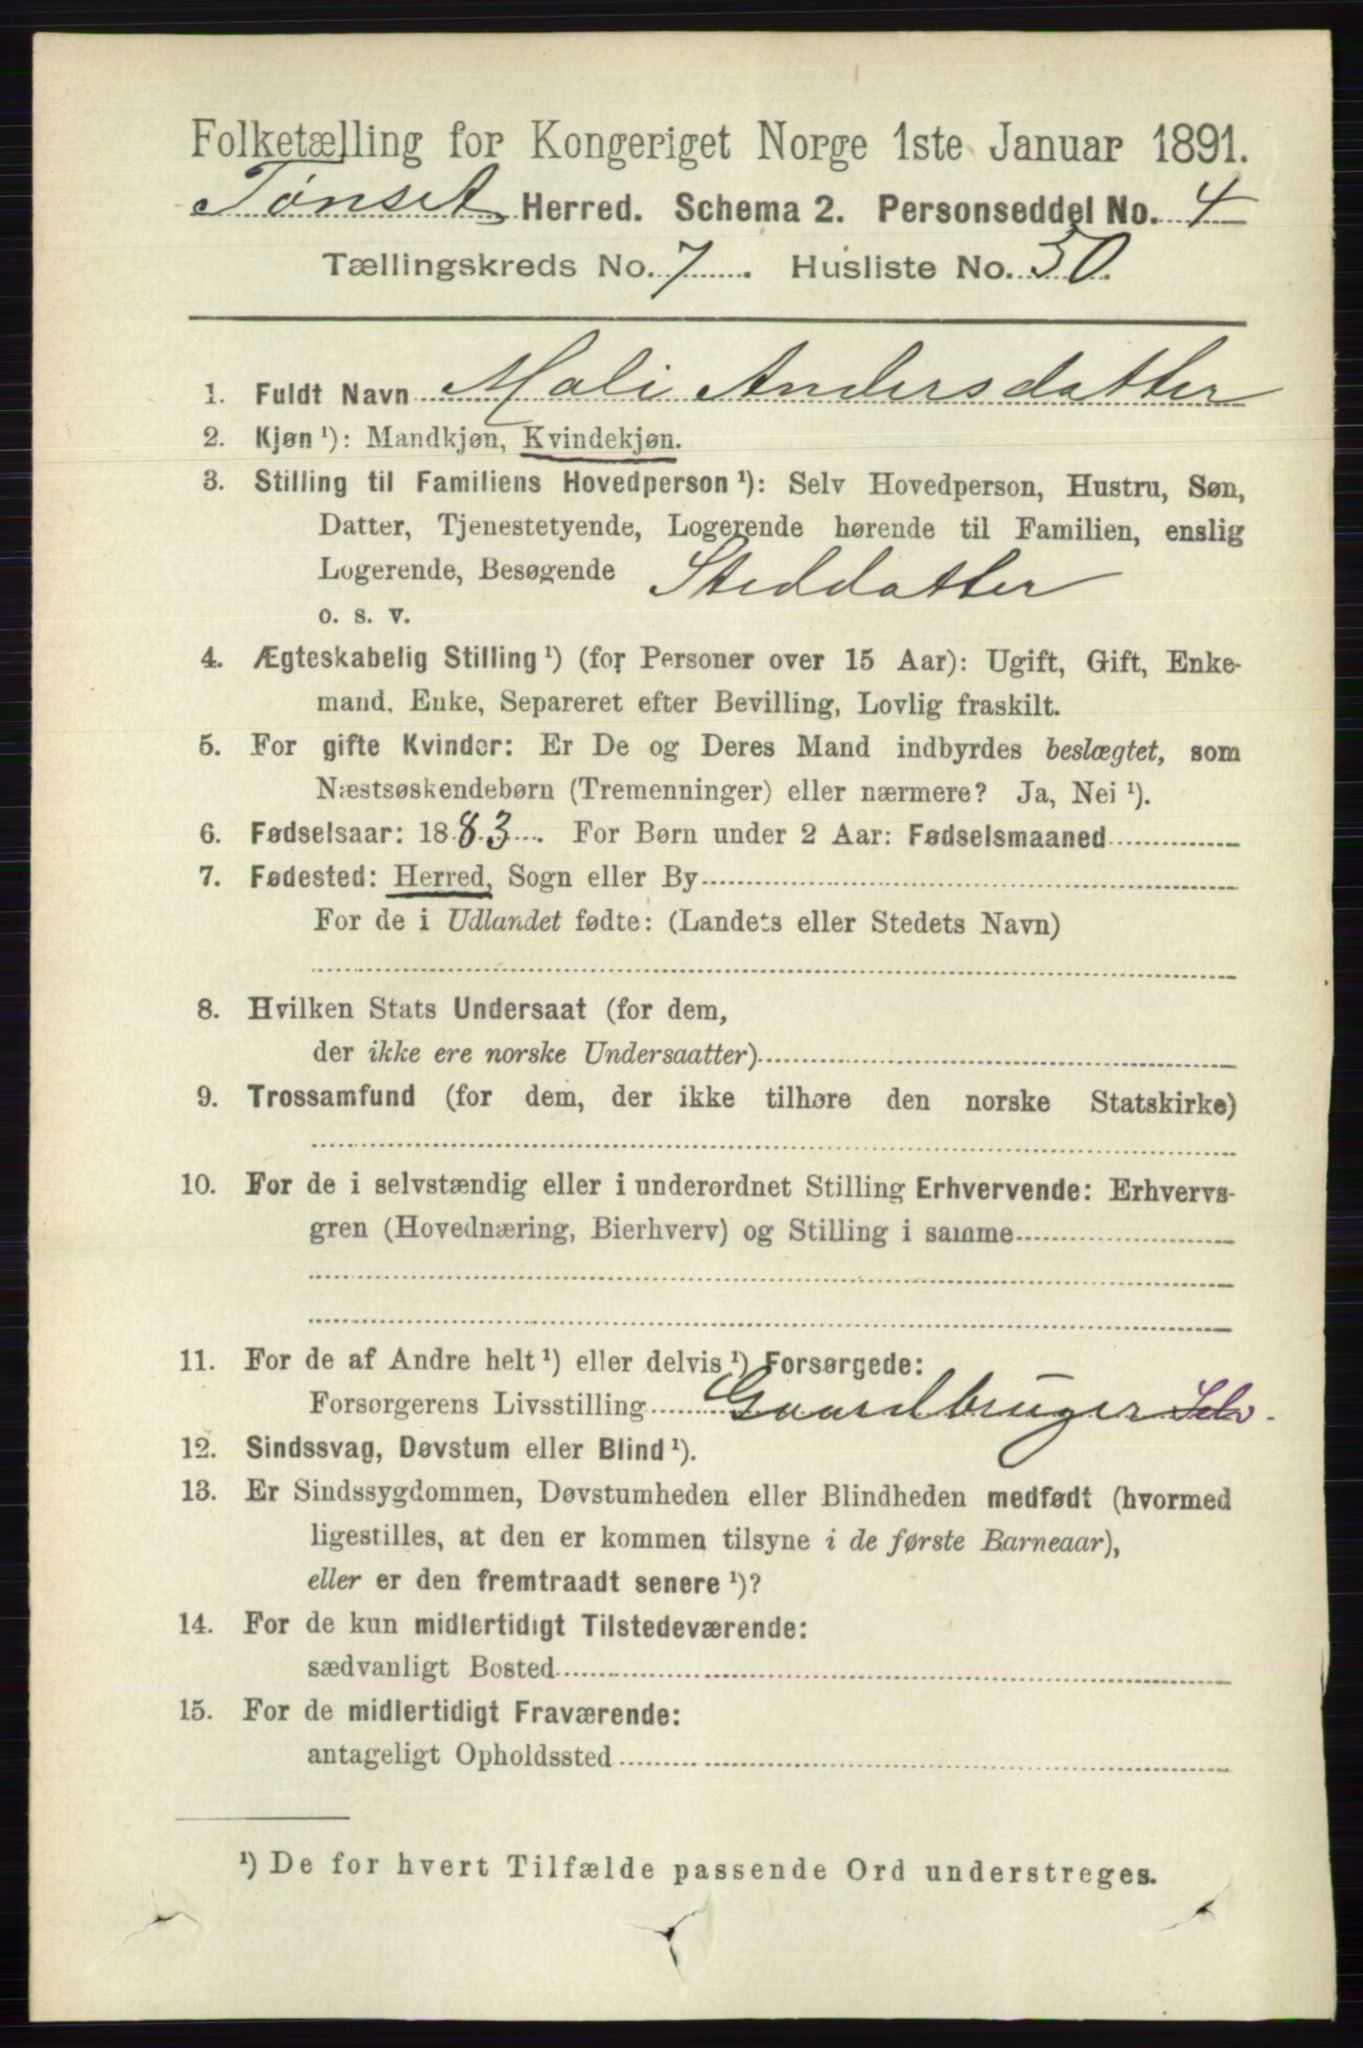 Folketælling for Kongeriget Norge 1ste Januar 1891.
Tønset Herred. Schema 2. Personseddel No. 4
Tællingskreds No. 7. Husliste No. 50.
1. Fuldt Navn Mali Andersdatter
2. Kjøn ¹): Mandkjøn, Kvindekjøn.
3. Stilling til Familiens Hovedperson ¹): Selv Hovedperson, Hustru, Søn,
Datter, Tjenestetyende, Logerende hørende til Familien, enslig
Logerende, Besøgende Steddatter
o. s. v.
4. Ægteskabelig Stilling ¹) (for Personer over 15 Aar): Ugift, Gift, Enke-
mand, Enke, Separeret efter Bevilling, Lovlig fraskilt.
5. For gifte Kvinder: Er De og Deres Mand indbyrdes beslægtet, som
Næstsøskendebørn (Tremenninger) eller nærmere? Ja, Nei ¹).
6. Fødselsaar: 1883. For Børn under 2 Aar: Fødselsmaaned
7. Fødested: Herred, Sogn eller By
For de i Udlandet fødte: (Landets eller Stedets Navn)
8. Hvilken Stats Undersaat (for dem,
der ikke ere norske Undersaatter)
9. Trossamfund (for dem, der ikke tilhøre den norske Statskirke)
10. For de i selvstændig eller i underordnet Stilling Erhvervende: Erhvervs-
gren (Hovednæring, Bierhverv) og Stilling i samme
11. For de af Andre helt ¹) eller delvis ¹) Forsørgede:
Forsørgerens Livsstilling Gaardbruger Selv.
12. Sindssvag, Døvstum eller Blind ¹).
13. Er Sindssygdommen, Døvstumheden eller Blindheden medfødt (hvormed
ligestilles, at den er kommen tilsyne i de første Barneaar),
eller er den fremtraadt senere ¹)?
14. For de kun midlertidigt Tilstedeværende:
sædvanligt Bosted
15. For de midlertidigt Fraværende:
antageligt Opholdssted
¹) De for hvert Tilfælde passende Ord understreges.